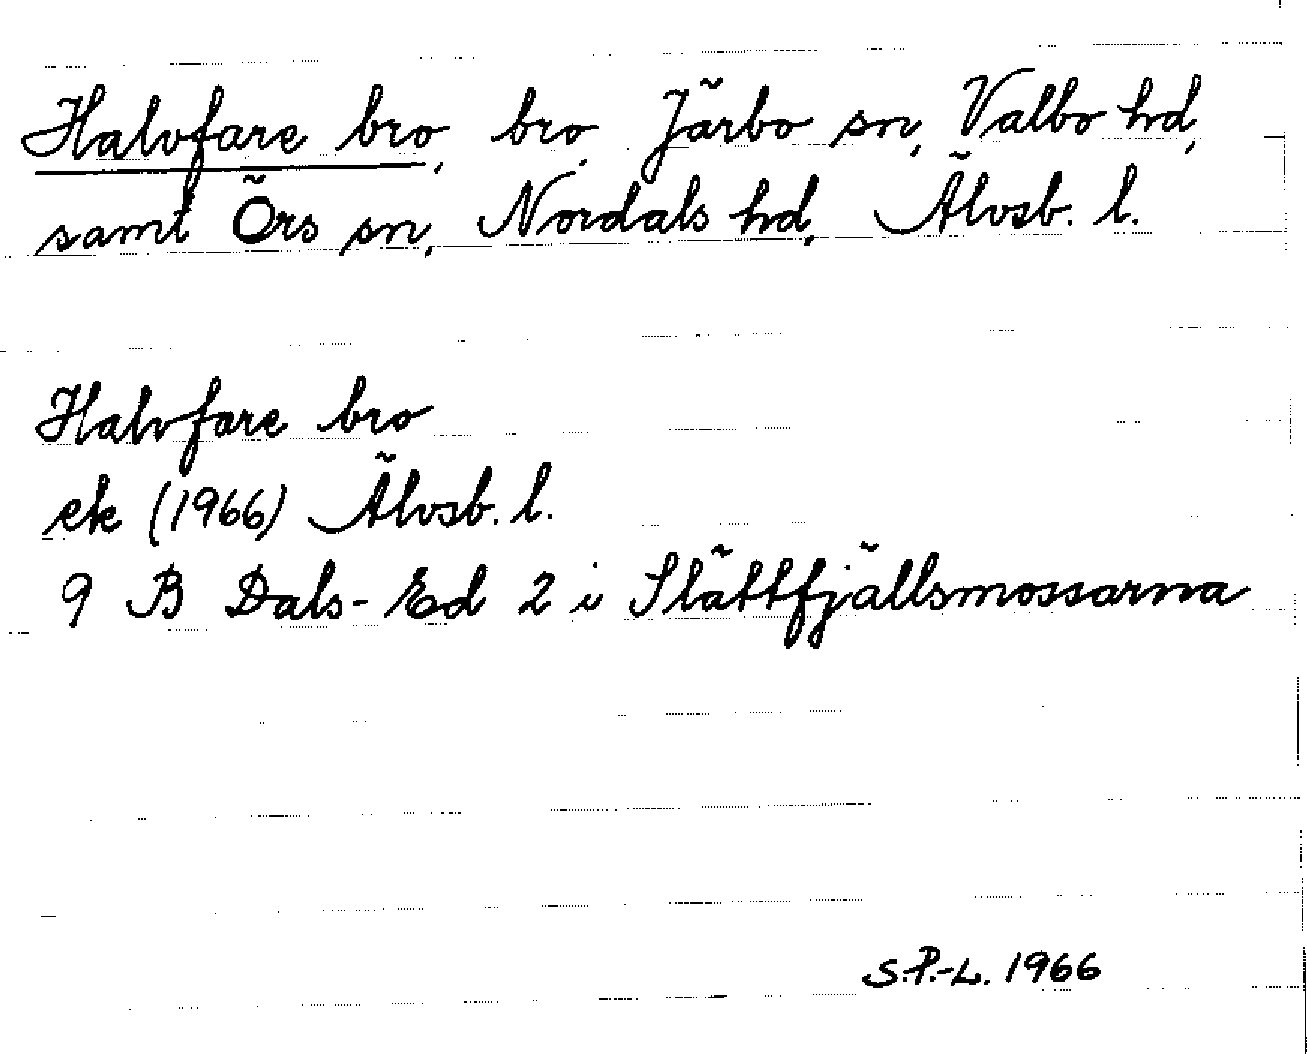 Halvfare bro, bro, Järbo sn, Valbo hd,
samt Örs sn, Nordals hd, Älvsb. l.
Halvfare bro
ek (1966) Älvsb. l.
9 B Dals-Ed 2 i Slättfjällsmossarna
S.P.-L. 1966